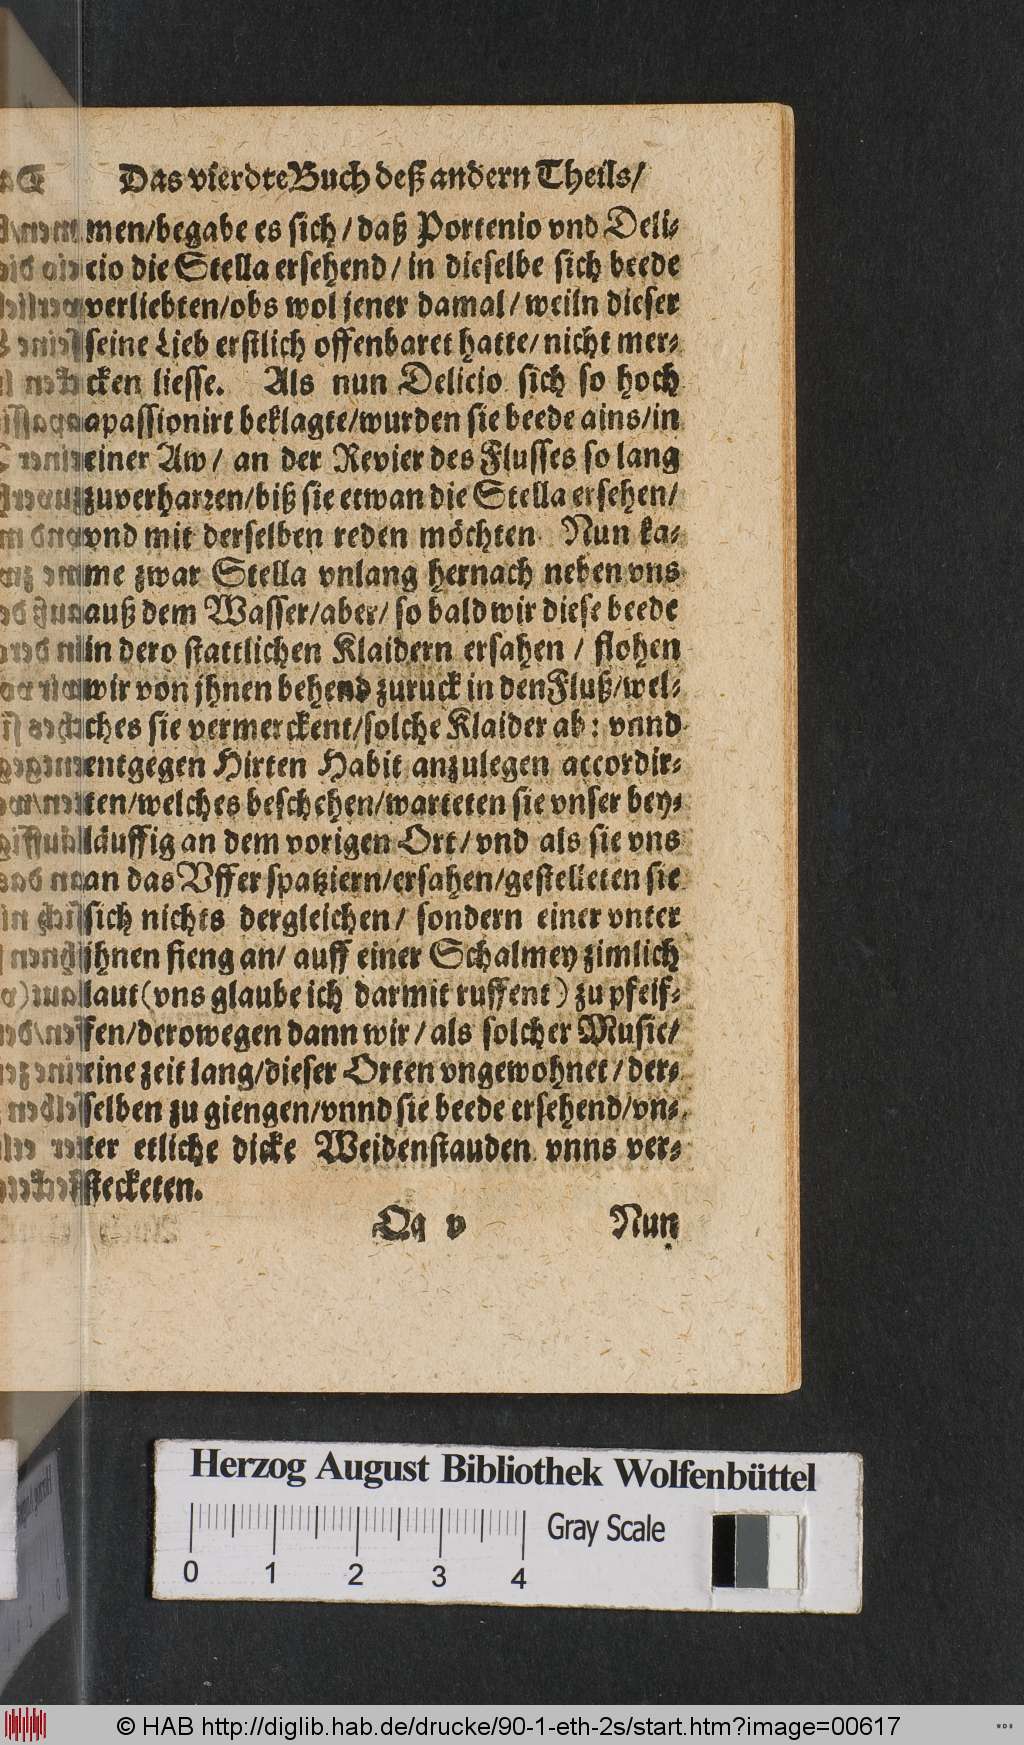 Das vierdte Buch deß andern Theils/
men/begabe es sich/daß Portenio vnd Deli-
cio die Stella ersehend/in dieselbe sich beede
verliebten/obs wol jener damal/weiln dieser
seine Lieb erstlich offenbaret hatte/nicht mer-
cken liesse. Als nun Delicio sich so hoch
apassionirt beklagte/wurden sie beede ains/in
einer Aw/an der Revier des Flusses so lang
zuverharren/biß sie etwan die Stella ersehen/
vnd mit derselben reden möchten Nun ka-
me zwar Stella vnlang hernach neben vns
auß dem Wasser/aber/so bald wir diese beede
in dero stattlichen Klaidern ersahen/flohen
wir von jhnen behend zuruck in den Fluß/wel-
ches sie vermerckent/solche Klaider ab: vnnd
entgegen Hirten Habit anzulegen accordir-
ten/welches beschehen/warteten sie vnser bey-
läuffig an dem vorigen Ort/vnd als sie vns
an das Vffer spatziern/ersahen/gestelleten sie
sich nichts dergleichen/sondern einer vnter
ihnen fieng an/auff einer Schalmey zimlich
laut(vns glaube ich darmit ruffent) zu pfeif-
fen/derowegen dann wir/als solcher Music/
eine zeit lang/dieser Orten vngewohnet/der-
selben zu giengen/vnnd sie beede ersehend/vn-
ter etliche dicke Weidenstauden vnns ver-
stecketen.
Qq v Nun
Herzog August Bibliothek Wolfenbüttel
Gray Scale
0 1 2 3 4
© HAB http://diglib.hab.de/drucke/90-1-eth-2s/start.htm?image=00617